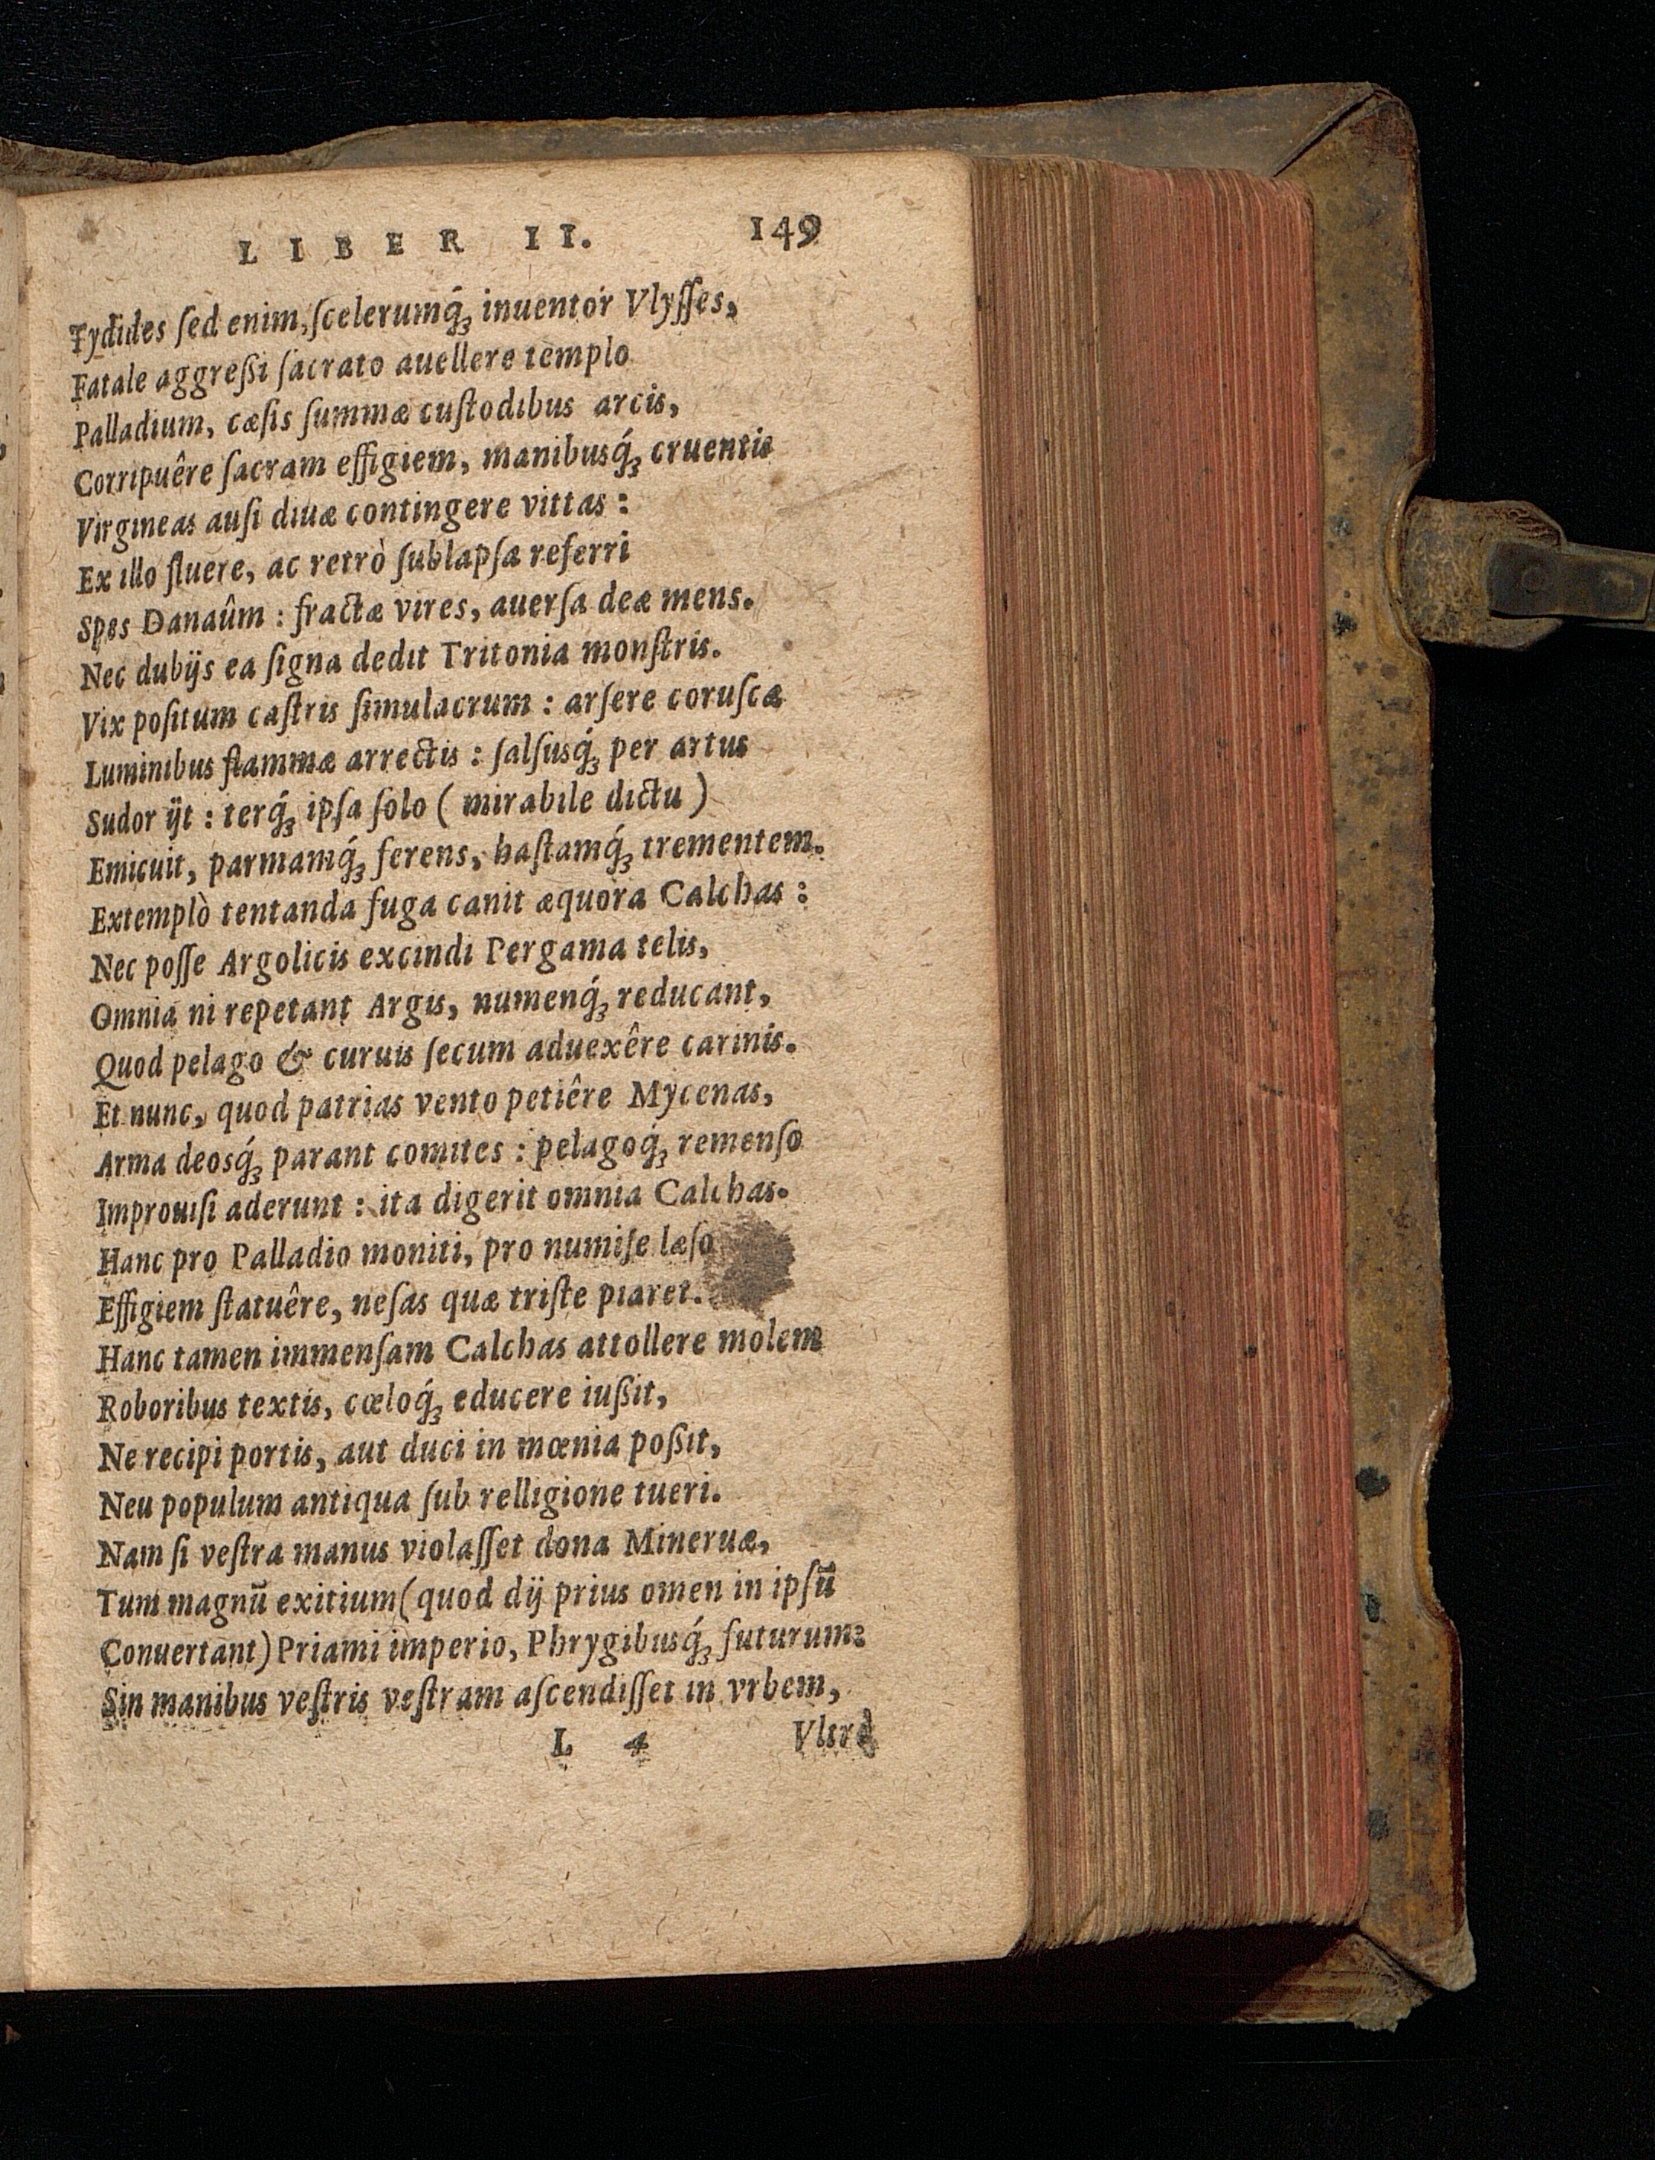 LIBER II. 149
Tydides ſed enim, ſcelerumq́ꝫ inuentor Vlyſſes,
Fatale aggreßi ſacrato auellere templo
Palladium, cæſis ſummæ cuſtodibus arcis,
Corripuêre ſacram effigiem, manibusq́ꝫ cruentis
Virgineas auſi diuæ contingere vittas:
Ex illo fluere, ac retrò ſublapſa referri
Spes Danaûm: fractæ vires, auerſa deæ mens.
Nec dubijs ea ſigna dedit Tritonia monſtris.
Vix poſitum caſtris ſimulacrum: arſere coruſcæ
Luminibus flammæ arrectis: ſalſusq́ꝫ per artus
Sudor ijt: terq́ꝫ ipſa ſolo (mirabile dictu)
Emicuit, parmamq́ꝫ ferens, haſtamq́ꝫ trementem.
Extemplò tentanda fuga canit æquora Calchas:
Nec poſſe Argolicis excindi Pergama telis,
Omnia ni repetant Argis, numenq́ꝫ reducant,
Quod pelago & curuis ſecum aduexêre carinis.
Et nunc, quod patrias vento petiêre Mycenas,
Arma deosq́ꝫ parant comites: pelagoq́ꝫ remenſo
Improuiſi aderunt: ita digerit omnia Calchas.
Hanc pro Palladio moniti, pro numiſe læſo
Effigiem ſtatuêre, neſas quæ triſte piaret.
Hanc tamen immenſam Calchas attollere molem
Roboribus textis, cœloq́ꝫ educere iußit,
Ne recipi portis, aut duci in mœnia poßit,
Neu populum antiqua ſub relligione tueri.
Nam ſi veſtra manus violaſſet dona Mineruæ,
Tum magnū exitium (quod dij prius omen in ipſū
Conuertant) Priami imperio, Phrygibusq́ꝫ futurum:
Sin manibus veſtris veſtram aſcendiſſet in vrbem,
L 4 Vltrà